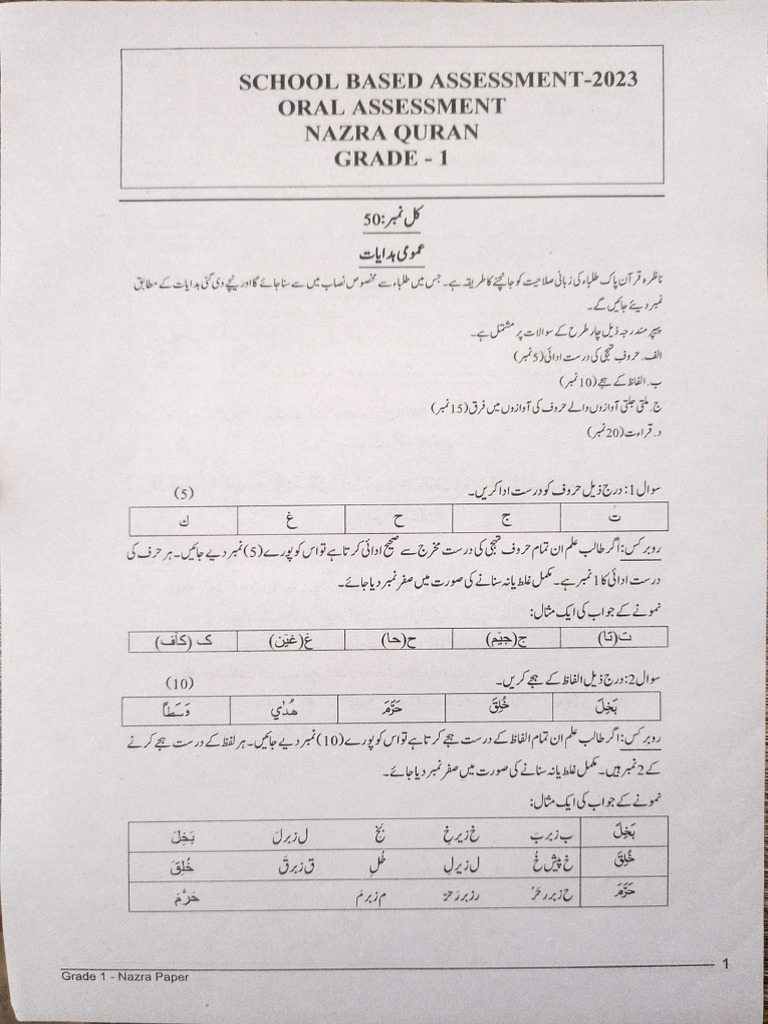 SCHOOL BASED ASSESSMENT-2023
ORAL ASSESSMENT
NAZRA QURAN
GRADE - 1
کل نمبر: 50
عمومی ہدایات
ناظرہ قرآن پاک طلباء کی زبانی صلاحیت کو جانچنے کا طریقہ ہے۔ جس میں طلباء سے مخصوص نصاب میں سے سنا جائے گا اور نیچے دی گئی ہدایات کے مطابق
نمبر دیئے جائیں گے۔
پیپر مندرجہ ذیل چار طرح کے سوالات پر مشتمل ہے۔
الف۔ حروف تہجی کی درست ادائی (5 نمبر)
ب۔ الفاظ کے ہجے (10 نمبر)
ج۔ ملتی جلتی آوازوں والے حروف کی آوازوں میں فرق (15 نمبر)
د۔ قراءت (20 نمبر)
سوال 1: درج ذیل حروف کو درست ادا کریں۔ (5)
ت ج ح غ ك
روبرکس: اگر طالب علم ان تمام حروف تہجی کی درست مخرج سے صحیح ادائی کرتا ہے تو اس کو پورے (5) نمبر دیے جائیں۔ ہر حرف کی
درست ادائی کا 1 نمبر ہے۔ مکمل غلط یا نہ سنانے کی صورت میں صفر نمبر دیا جائے۔
نمونے کے جواب کی ایک مثال:
ت (تا) ج (جیٓم) ح (حا) غ (غیٓن) ک (کآف)
سوال 2: درج ذیل الفاظ کے ہجے کریں۔ (10)
بَخِلَ خُلِقَ حَرَّمَ هُدٰي وَسَطًا
روبرکس: اگر طالب علم ان تمام الفاظ کے درست ہجے کرتا ہے تو اس کو پورے (10) نمبر دیے جائیں۔ ہر لفظ کے درست ہجے کرنے
کے 2 نمبر ہیں۔ مکمل غلط یا نہ سنانے کی صورت میں صفر نمبر دیا جائے۔
نمونے کے جواب کی ایک مثال:
بَخِلَ ب زبر بَ خ زیر خِ بَخِ ل زبر لَ بَخِلَ
خُلِقَ خ پیش خُ ل زیر لِ خُلِ ق زبر قَ خُلِقَ
حَرَّمَ ح زبر ر حَرْ ر زبر رَ حَرَّ م زبر مَ حَرَّمَ
Grade 1 - Nazra Paper 1